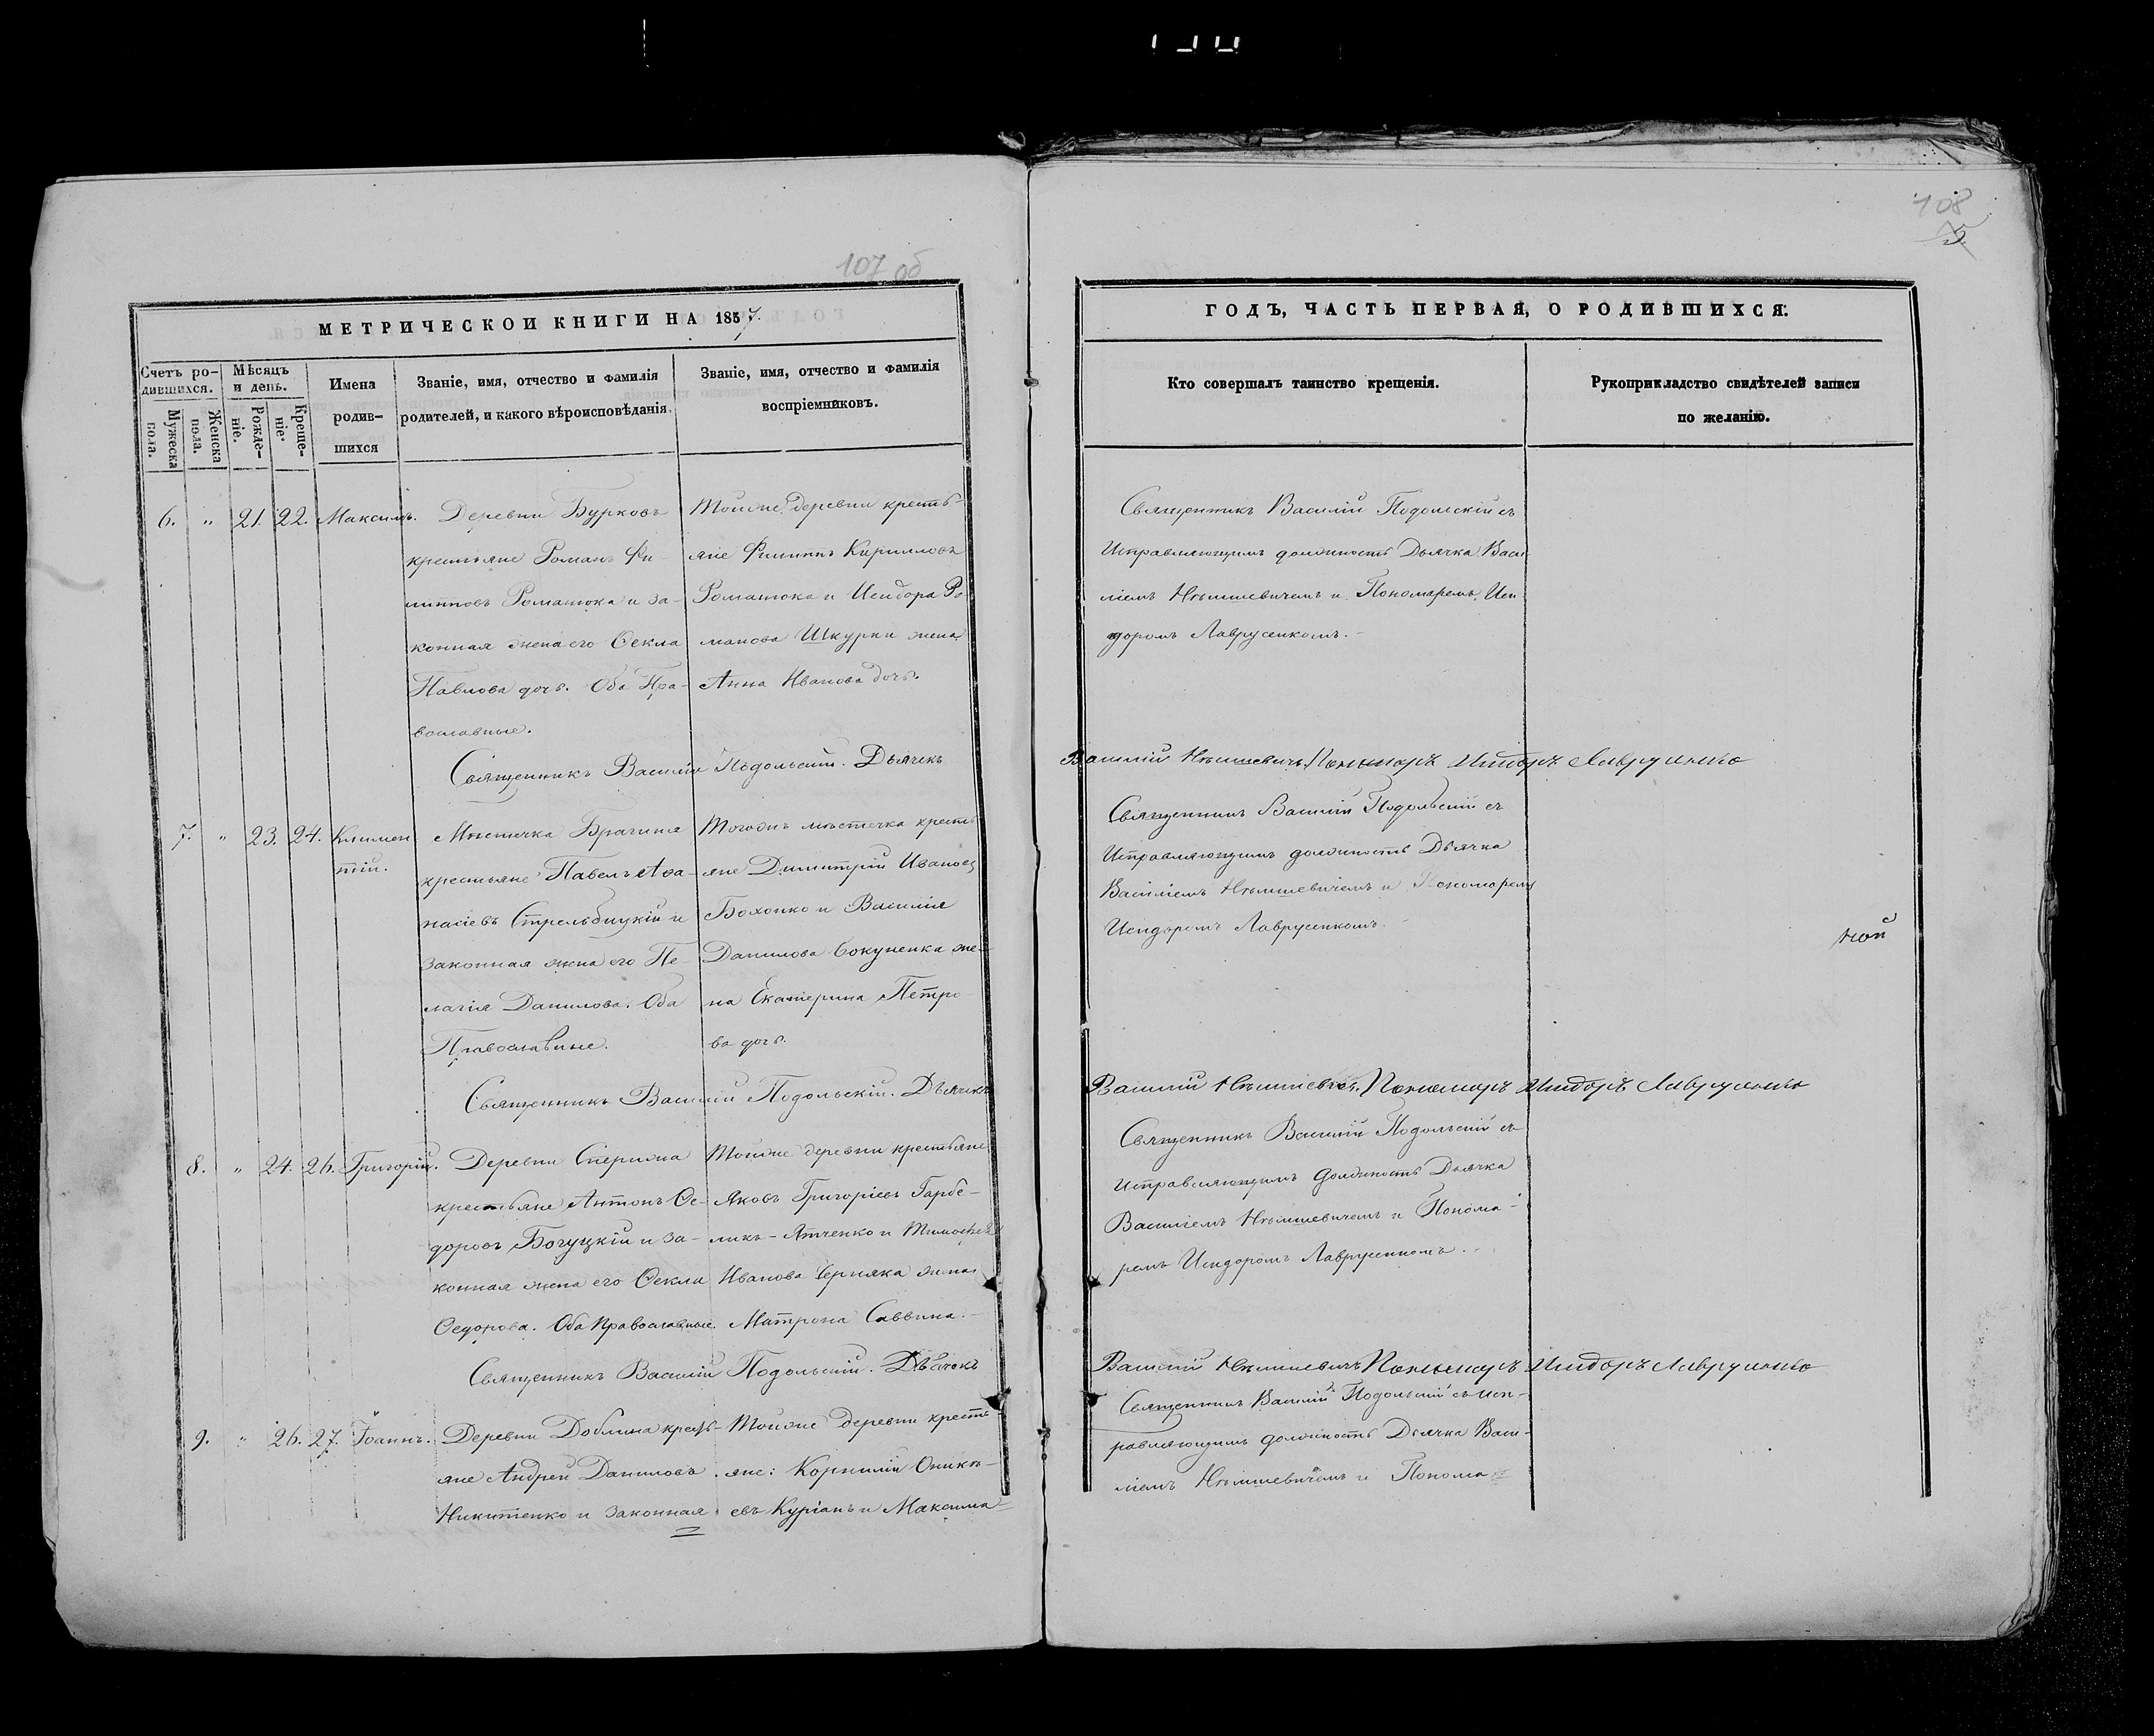 107 об
МЕТРИЧЕСКОЙ КНИГИ НА 1857.
Счетъ ро-
дившихся.
Мужеска
пола.
Женска
пола.
Мѣсяцъ
и день.
Рожде-
ніе.
Креще-
ніе.
Имена
родив-
шихся
Званіе, имя, отчество и фамилія
родителей, и какого вѣроисповѣданія.
Званіе, имя, отчество и фамилія
воспріемниковъ.
6. „ 21. 22. Максимъ.
Деревни Бурковъ
крестьяне Романъ Фи-
липповъ Романюка и за-
конная жена его Ѳекла
Павлова дочь. Оба Пра-
вославные.
Тойже деревни кресть-
яне Филиппъ Кирилловъ
Романюка и Исидора Ро
манова Шкурки жена
Анна Иванова дочь.
Священникъ Василій Подольскій. Дьячекъ
7. „ 23. 24. Климен
тій.
Мѣстечка Брагина
крестьяне Павелъ Аѳа-
насіевъ Стрельбицкій и
законная жена его Пе-
лагія Данилова. Оба
Православные.
Тогожъ мѣстечка кресть
яне Димитрій Ивановъ
Бохонко и Василія
Данилова Сокуненка же-
на Екатерина Петро-
ва дочь.
Священникъ Василій Подольскій. Дьячекъ
8. „ 24. 26. Григорій.
Деревни Стерижа
крестьяне Антонъ Ѳе-
доровъ Богуцкій и за-
конная жена его Ѳекла
Ѳедорова. Оба Православные.
Тойже деревни крестьяне
Яковъ Григоріевъ Гарбе-
ликъ-Ятченко и Тимоѳея
Иванова Черняка жена
Матрона Саввина.
Священникъ Василій Подольскій. Дьячекъ
9. „ 26. 27. Іоаннъ.
Деревни Доблина кресть-
яне Андрей Даниловъ
Никитенко и законная
Тойже деревни кресть-
яне: Корнилій Оникѣ-
евъ Курганъ и Максима
108
5.
ГОДЪ, ЧАСТЬ ПЕРВАЯ, О РОДИВШИХСЯ:
Кто совершалъ таинство крещенія.
Рукоприкладство свидѣтелей записи
по желанію.
Священникъ Василій Подольскій съ
Исправляющимъ должность Дьячка Васи
ліемъ Нѣмшевичемъ и Пономаремъ Иси
доромъ Лаврусенкомъ.
Василій Нѣмшевичъ. Пономарь Исидоръ Лаврусенко
Священникъ Василій Подольскій съ
Исправляющимъ должность Дьячка
Василіемъ Нѣмшевичемъ и Пономаремъ
Исидоромъ Лаврусенкомъ.
ной
Василій Нѣмшевичъ. Пономарь Исидоръ Лаврусенко
Священникъ Василій Подольскій съ
исправляющимъ должность Дьячка
Василіемъ Нѣмшевичемъ и Понома-
ремъ Исидоромъ Лаврусенкомъ.
Василій Нѣмшевичъ Пономарь Исидоръ Лаврусенко
Священникъ Василій Подольскій съ исп-
равляющимъ должность Дьячка Васи-
ліемъ Нѣмшевичемъ и Понома